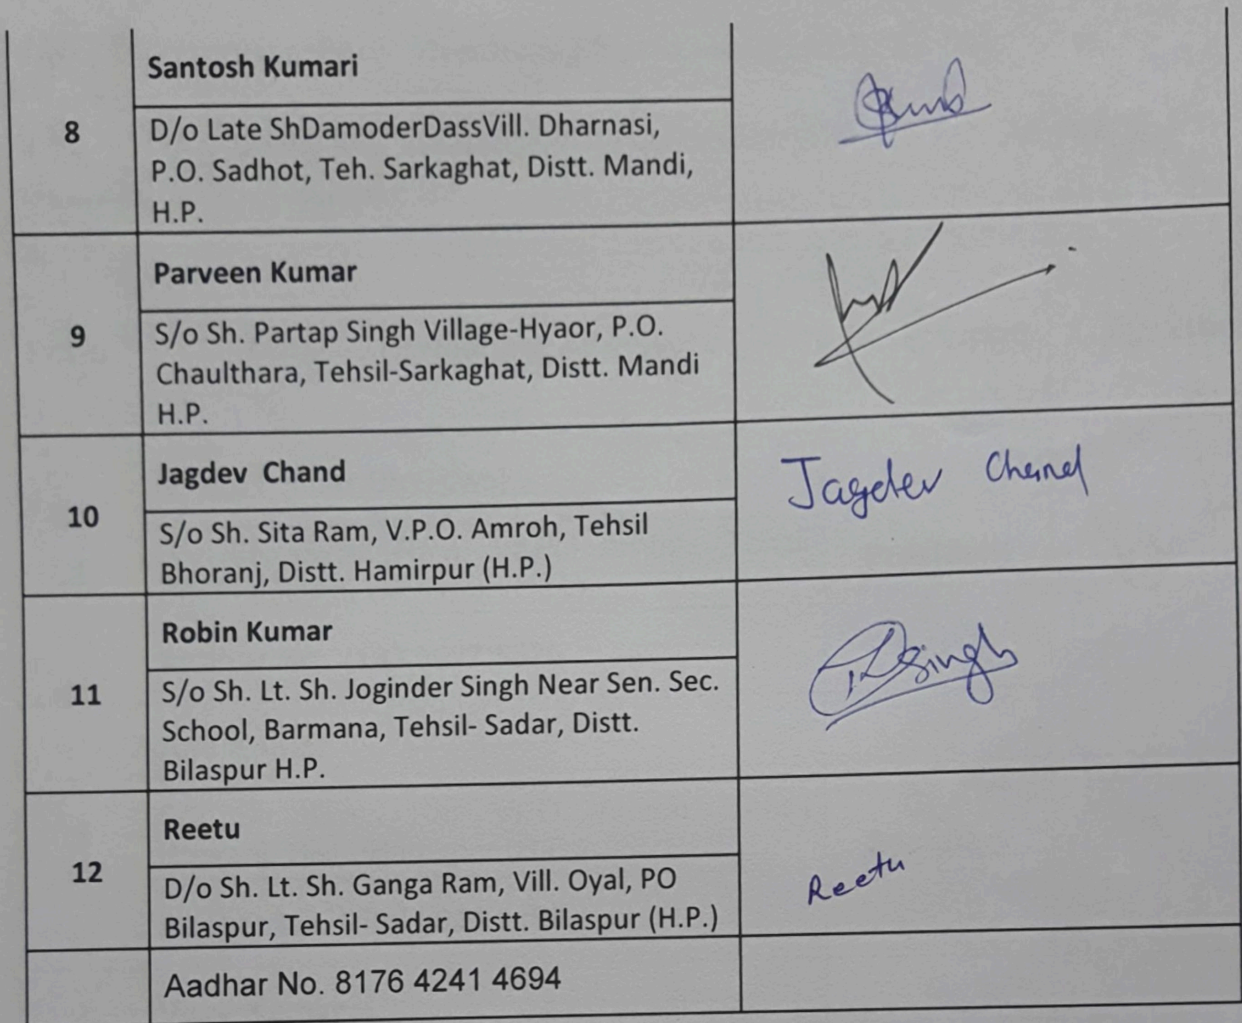 Santosh Kumari
8
D/o Late ShDamoderDassVill. Dharnasi,
P.O. Sadhot, Teh. Sarkaghat, Distt. Mandi,
H.P.
Parveen Kumar
9
S/o Sh. Partap Singh Village-Hyaor, P.O.
Chaulthara, Tehsil-Sarkaghat, Distt. Mandi
H.P.
Jagdev Chand
Jagdev Chand
10
S/o Sh. Sita Ram, V.P.O. Amroh, Tehsil
Bhoranj, Distt. Hamirpur (H.P.)
Robin Kumar
Singh
11
S/o Sh. Lt. Sh. Joginder Singh Near Sen. Sec.
School, Barmana, Tehsil- Sadar, Distt.
Bilaspur H.P.
Reetu
12
D/o Sh. Lt. Sh. Ganga Ram, Vill. Oyal, PO
Bilaspur, Tehsil- Sadar, Distt. Bilaspur (H.P.)
Reetu
Aadhar No. 8176 4241 4694